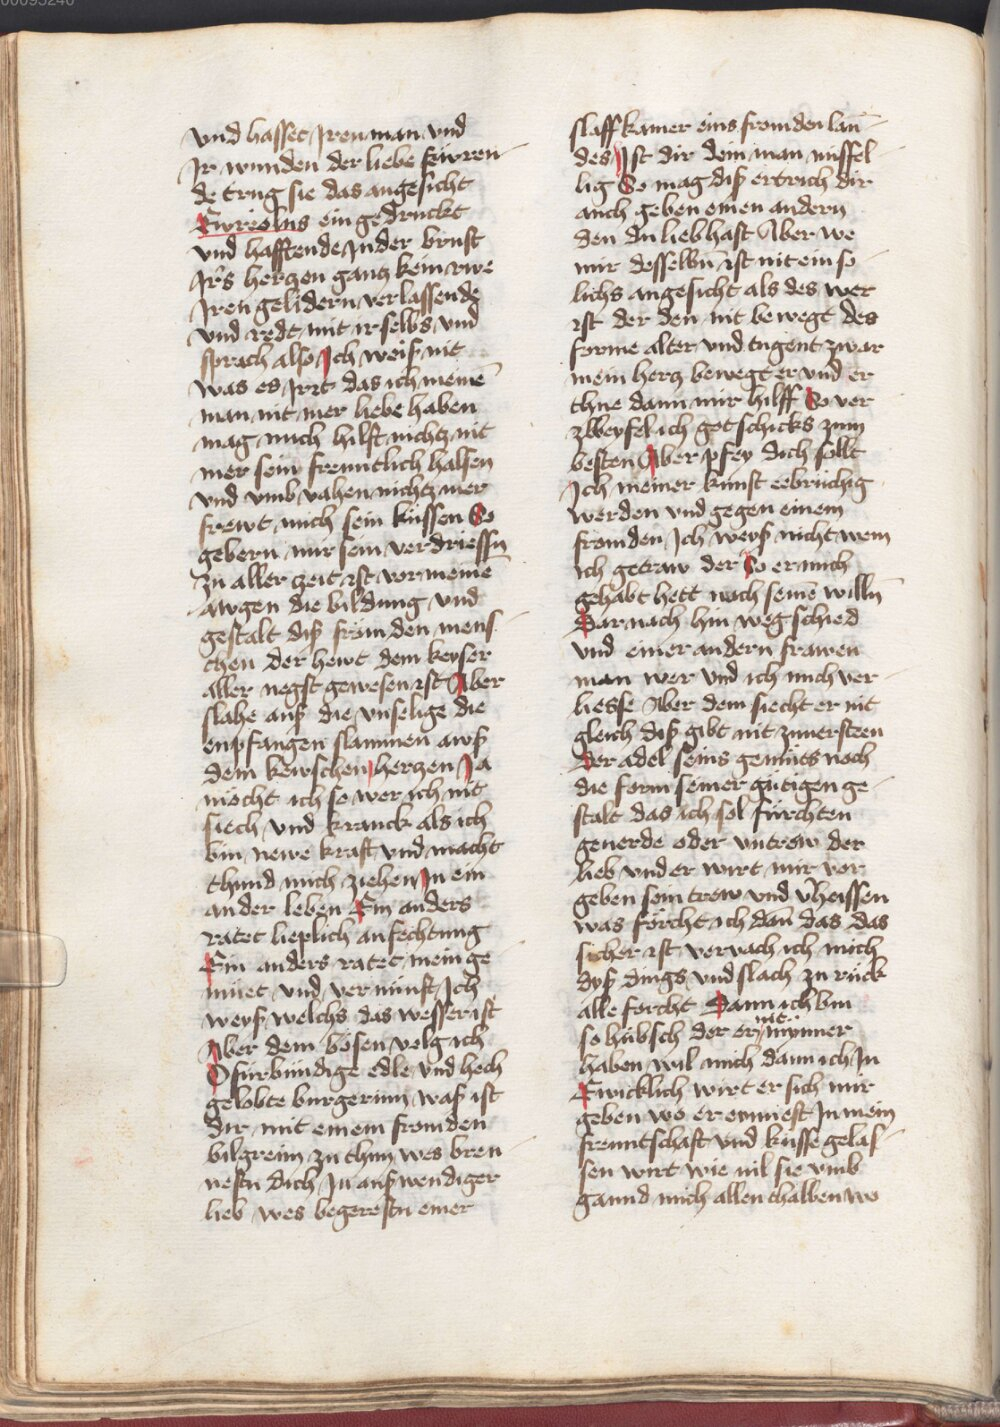 00095240
vnd hasset Iren man vnd
Ir wunden der liebe fürren
de trug sie das angesicht
Ewriolus ein gedruckt
vnd hafftende In der brust
Irs hertzen gantz kein rwe
Iren gelidern verlassende
vnd redt mit ir selbs vnd
sprach also Ich weiß nit
was es Irrt das ich meinē
man nit mer liebe haben
mag mich hilft nichtz nit
mer sein freuntlich halsen
vnd vmb vahen nichtz mer
frewt mich sein küssen So
gebern mir sein verdriessn
zu aller zeit ist vor meinē
awgen die bildung vnd
gestalt diß frömden mens
chen der hewt dem keyser
aller negst gewesen ist Aber
slahe auß die vnselige die
enpfangen flammen awß
dem kewschen hertzen Ja
möcht ich so wer ich nit
siech vnd kranck als ich
bin newe kraft vnd macht
thund mich ziehen In ein
ander leben Ein anders
ratet lieplich anfechtung
Ein anders ratet mein ge
müet vnd vernunft Ich
weyß welchs das wesser ist
Aber dem bösen volg ich
O fürbündige edle vnd hoch
gelobte burgerinn waß ist
dir mit einem fromden
bilgreim zu thun wes bren
nestu dich In außwendiger
lieb wes begerestu einer
slaff kamer eins fromden lan
des Ist dir dein man missel
lig So mag diß ertrich dir
auch geben einen andern
den du lieb hast Aber we
mir desselbn̄ ist nit ein so
lichs angesicht als des wer
ist der den nit bewegt des
forme alter vnd tugent zwar
mein hertz bewegt er vnd er
thue dann mir hilff So ver
zbeyfel ich got schicks zum
besten Aber pfey dich sollt
Ich meiner kunst eebrüchig
werden vnd gegen einem
fromden Ich weyß nicht wem
ich getraw der So er mich
gehabt hett nach seinē willn̄
Darnach hin weg schied
vnd einer andern frawen
man wer vnd ich mich ver
liesse Aber dem siecht er nit
gleich diß gibt nit zuuersteen
Der adel seins gemüts noch
die form seiner gütigen ge
stalt das ich sol fürchten
geuerde oder vntrew der
lieb vnd er wirt mir vor
geben sein trew vnd v̄heissen
was förcht ich dan̄ das das
sicher ist vervach ich mich
dyß dings vnd slach zu rück
alle forcht Dann ich bin
so hübsch der er nit mynner
haben wil mich dann ich In
Ewicklich wirt er sich mir
geben wo er eynnest In mein
freuntschaft vnd küsse gelas
sen wirt wie vil sie vmb
gannd mich allenthalben wo